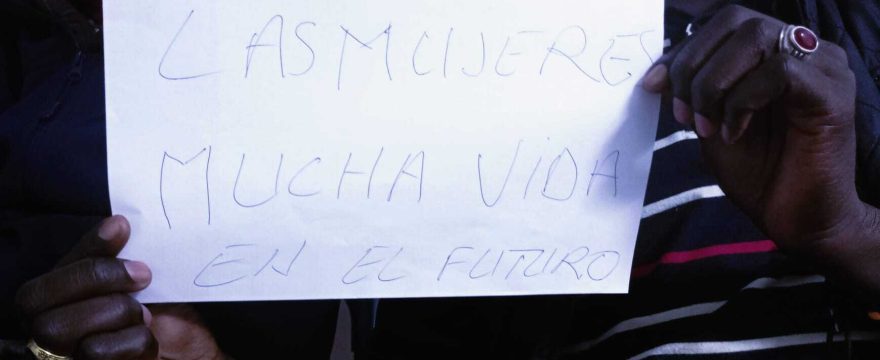 LAS MUJERES
MUCHA ViDA
EN EL FUTURO